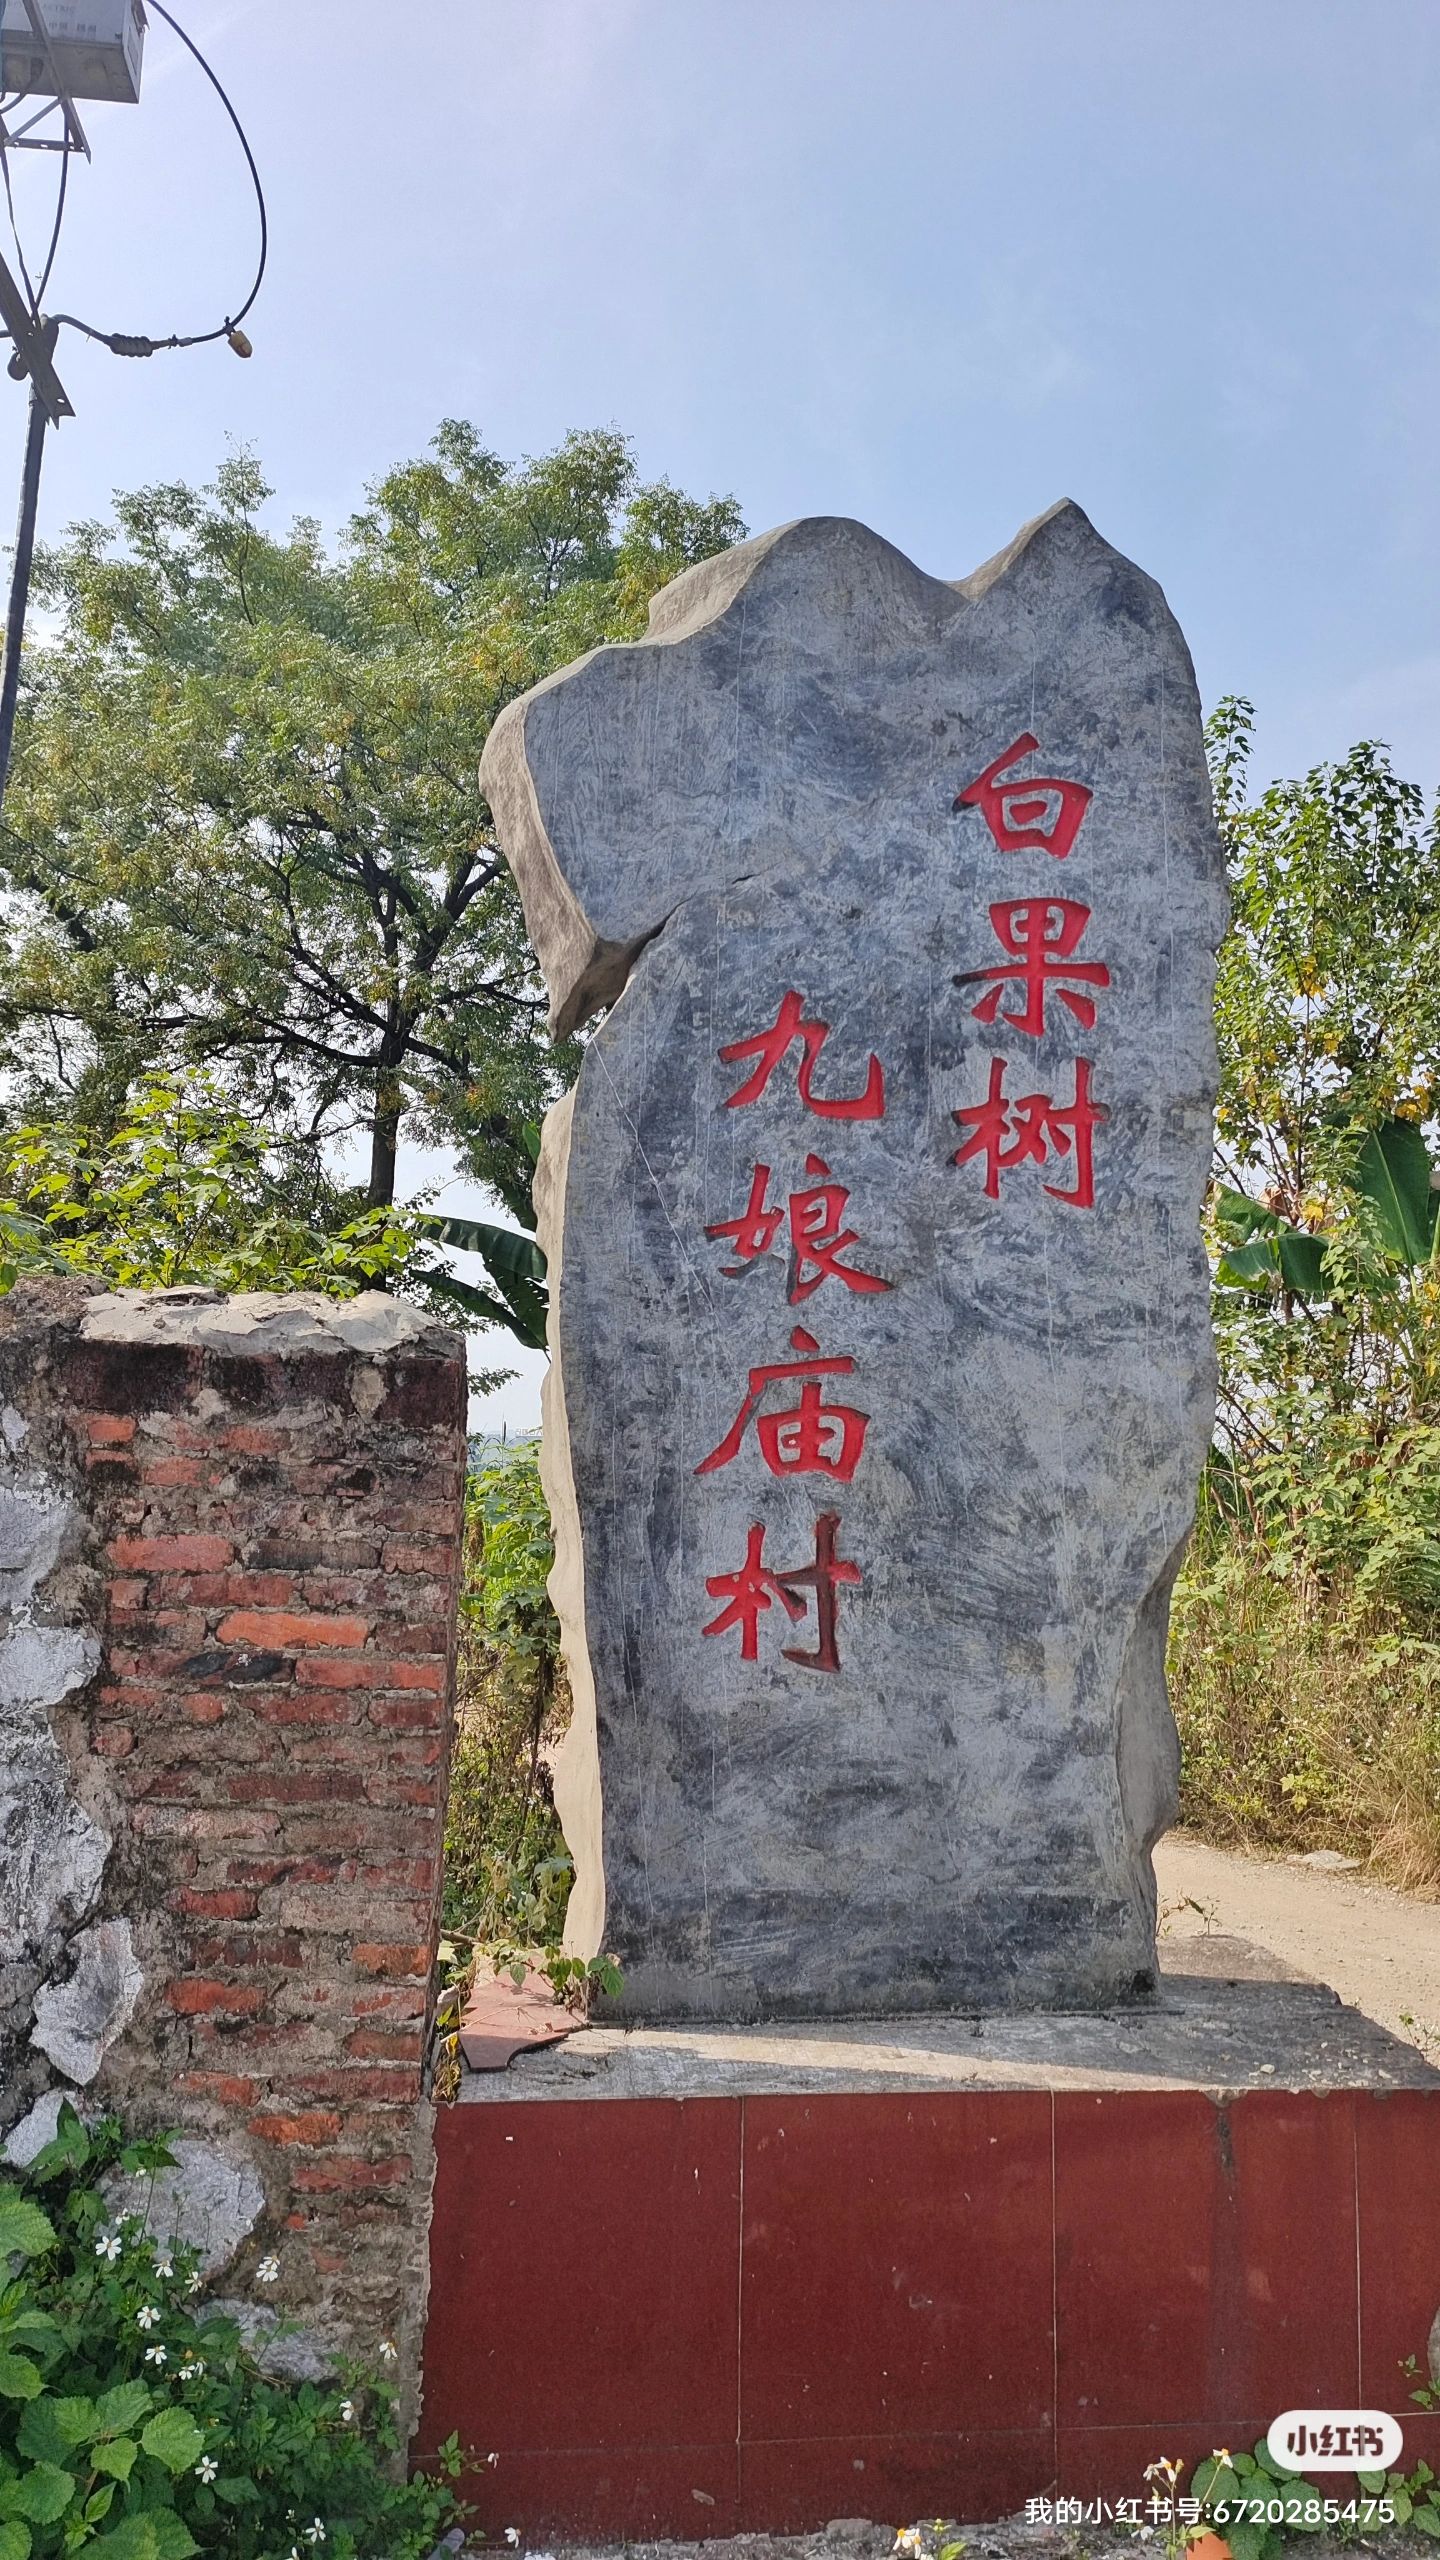 白果树
九娘庙村
小红书
我的小红书号:6720285475